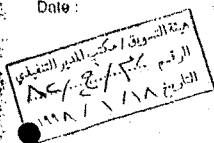 Date :
هيئة التسويق / مكتب المدير التنفيذي
الرقم
التاريخ ١٩٩٨/١/١٨